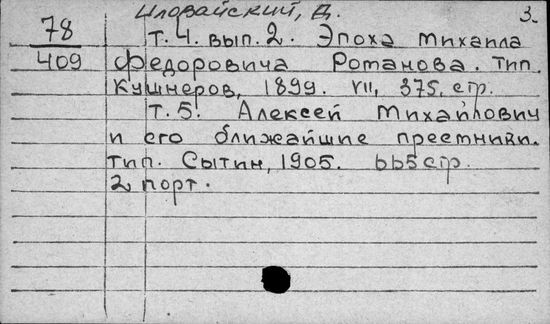 Иловайский, Д. 3.
78 т. 4. вып. 2. Эпоха Михаила
409 Федоровича Романова. тип.
Кушнеров, 1899. VII, 375. стр.
т. 5. Алексей Михайлович
и его ближайшие преемники.
тип. Сытин, 1905. 665 стр.
2 порт.